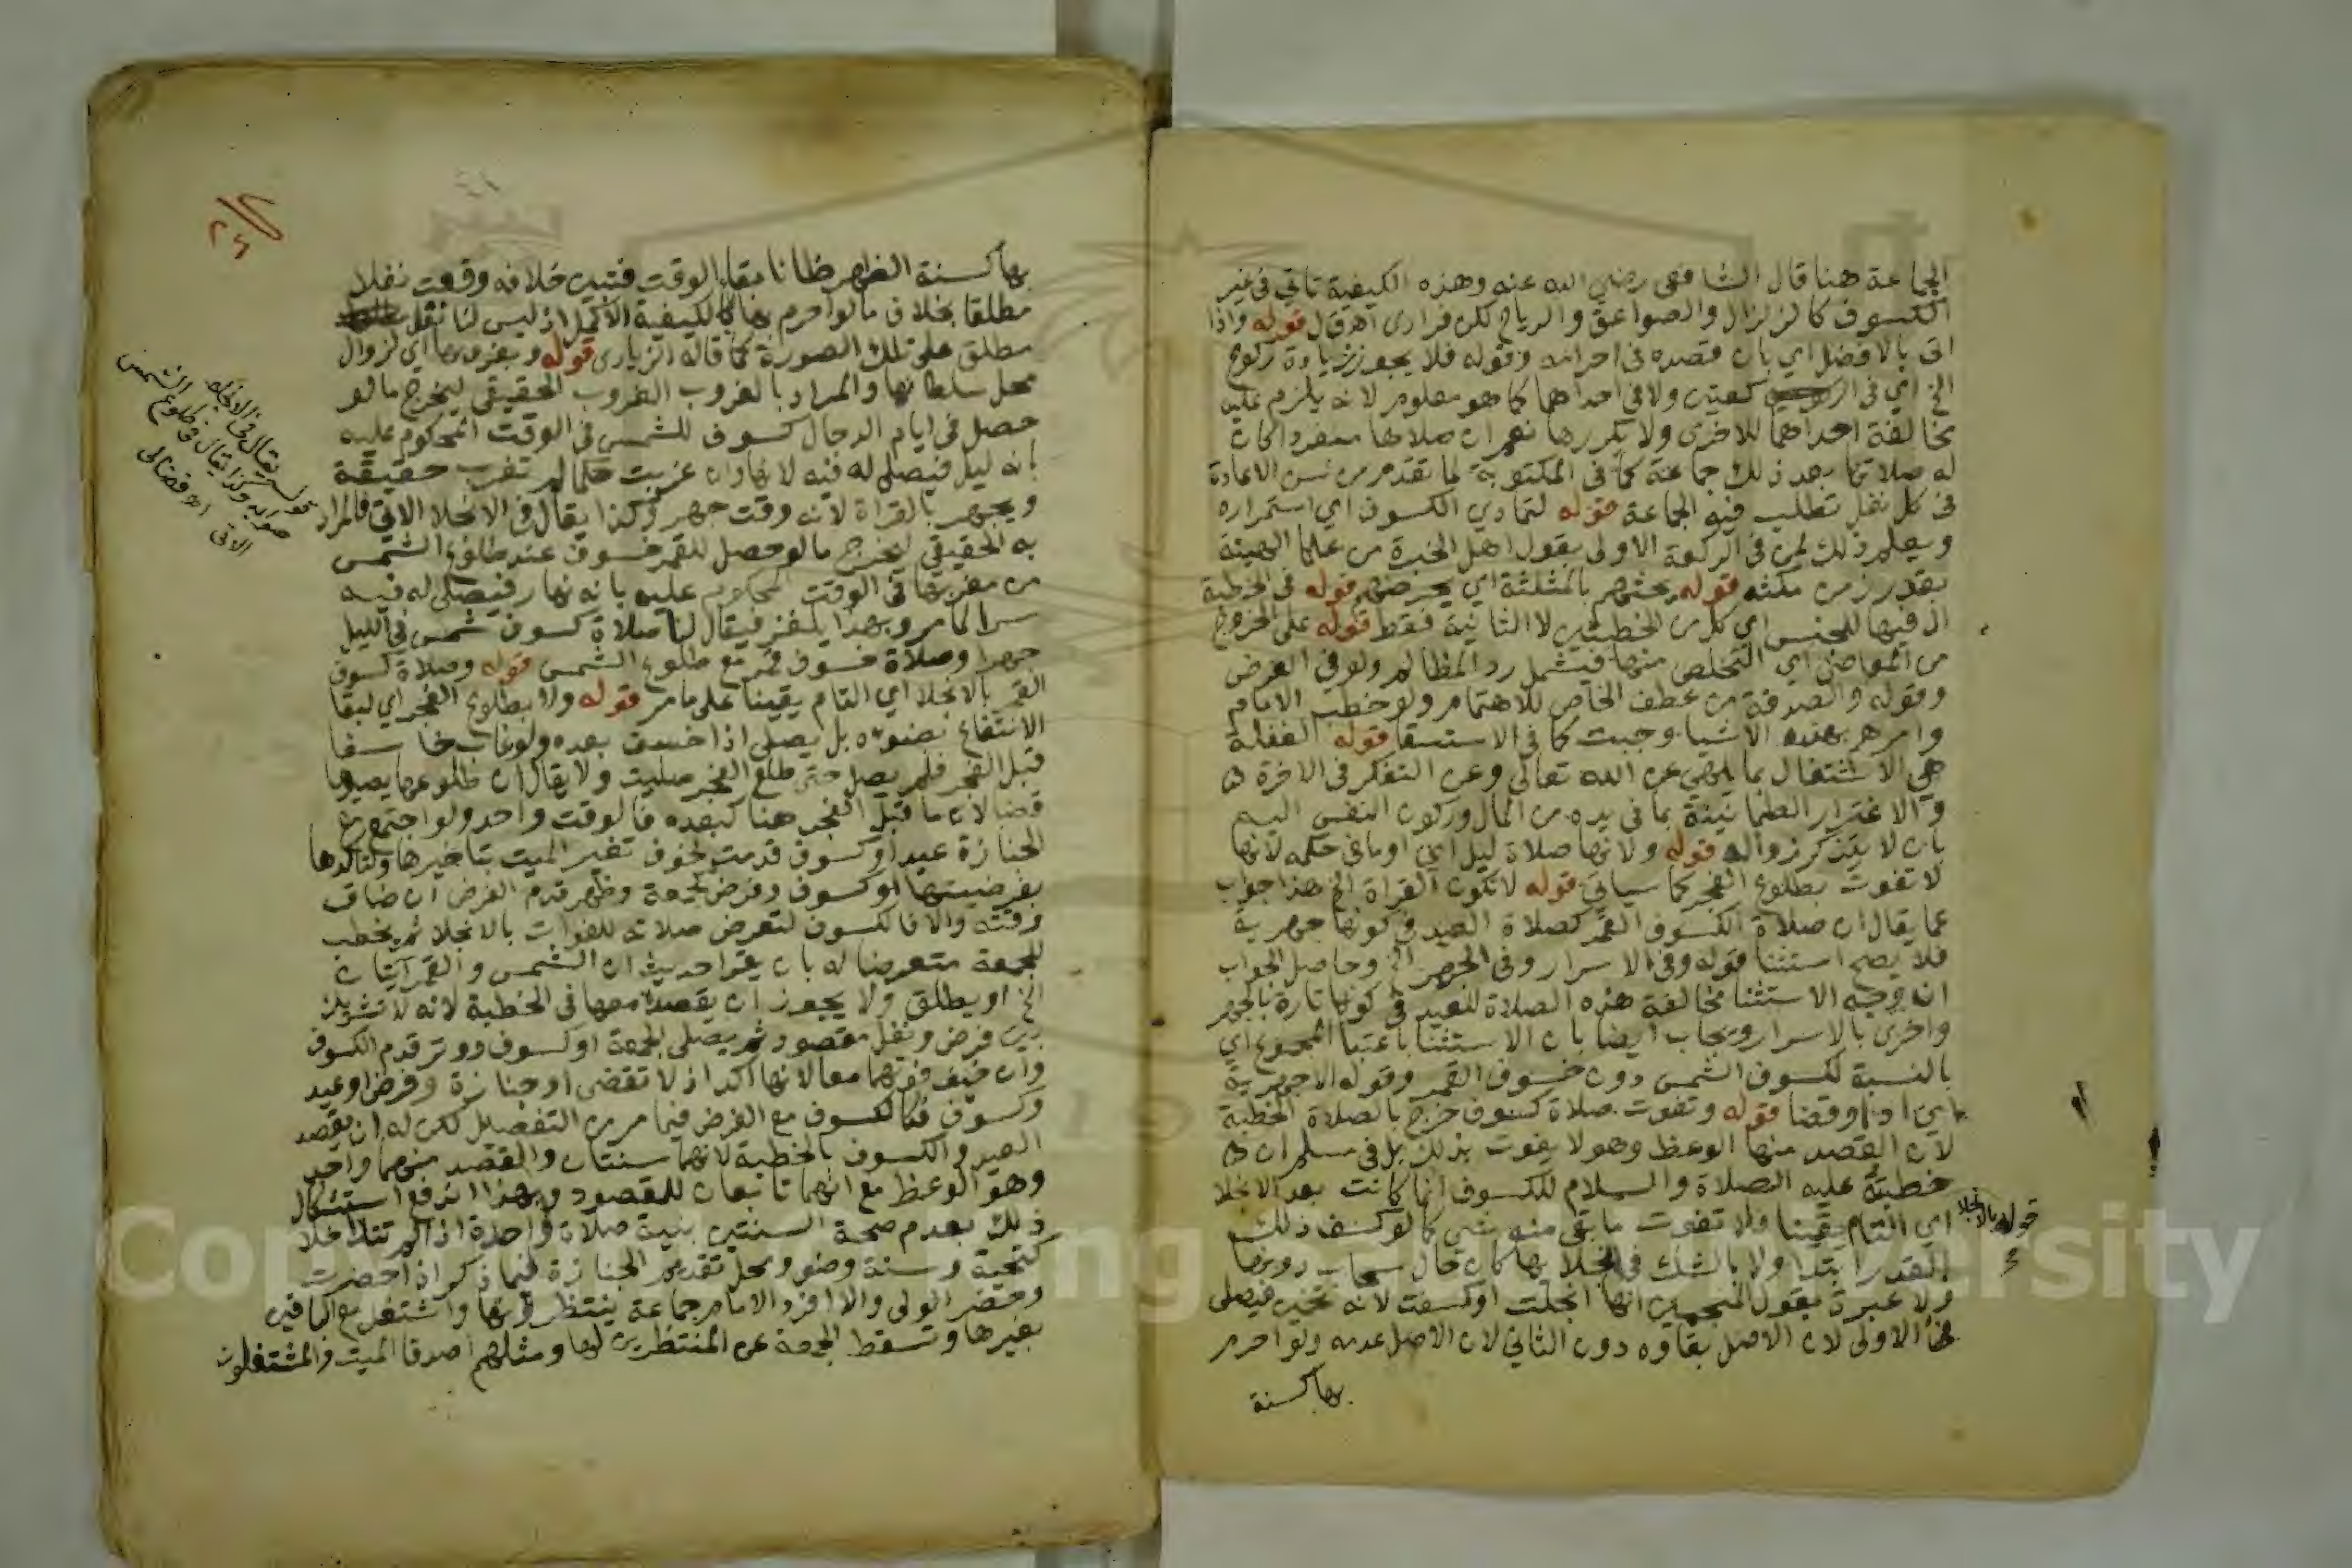 الجماعة هنا قال الشافعي رضي الله عنه وهذه الكيفية تاتي في غير
الكسوف كالزلزال والصواعق والرياح لكن فرادى اهـ ق ل قوله واذا
اتى بالافضل اي بان قصده في احرامه وقوله فلا يجوز زيادة ركوع
الخ اي في الركعتين ولا في احداهما كما هو معلوم لانه يلزم عليه
مخالفة احداهما للاخرى ولا يكررها نعم ان صلاها منفردا كان
له صلاتها بعد ذلك جماعة كما في المكتوبة لما تقدم من سن الاعادة
في كل نفل تطلب فيه الجماعة قوله لتمادي الكسوف اي استمراره
ويعلم ذلك لمن في الركعة الاولى بقول اهل الخبرة من علما الهيئة
بقدر زمن مكثه قوله يحثهم بالمثلثة اي يحرضهم قوله في الخطبة
ال فيها للجنس اي كل من الخطبتين لا الثانية فقط قوله على الخروج
من المعاصي اي التخلص منها فيشمل رد المظالم ولو في العرض
وقوله والصدقة من عطف الخاص للاهتمام ولو خطب الامام
وامرهم بهذه الاشيا وجبت كما في الاستسقا قوله الغفلة
هي الاشتغال بما يلهي عن الله تعالى وعن التفكر في الاخرة
والاغترار الطمانينة بما في يده من المال وركون النفس اليه
بان لا يتذكر زواله قوله ولانها صلاة ليل اي او ما في حكمه لانها
لا تفوت بطلوع الفجر كما سياتي قوله لا تكون القراة الخ هذا جواب
عما يقال ان صلاة الكسوف القمر كصلاة العيد في كونها جهرية
فلا يصح استثنا قوله وفي الاسرار وفي الجهر الخ وحاصل الجواب
ان وجه الاستثنا مخالفة هذه الصلاة للعيد في كونها تارة بالجهر
واخرى بالاسرار ويجاب ايضا بان الاستثنا باعتبا المجموع اي
بالنسبة لكسوف الشمس دون خسوف القمر وقوله الاجهرية
اي ادا وقضا قوله وتفوت صلاة كسوف خرج بالصلاة الخطبة
لان القصد منها الوعظ وهو لا يفوت بذلك بل في مسلم ان
خطبته عليه الصلاة والسلام للكسوف انما كانت بعد الانجلا
قوله بالانجلا
اي التام يقينا ولا تفوت ما بقي منه شي كما لو كسف ذلك
القدر ابتدا ولا بالشك في انجلا بها كان حال سحاب دونها
ولا عبرة بقول المنجمين انها انجلت او كسفت لانه تخمين فيصلى
في الاولى لان الاصل بقاوه دون الثاني لان الاصل عدمه ولو احرم
بها كسنة
بها كسنة الظهر ظانا بقاء الوقت فتبين خلافه وقعت نفلا
مطلقا بخلاف ما لو احرم بها بالكيفية الاكمل اذ ليس لنا نفل
مطلق على تلك الصورة كما قاله الزيادى قوله وبغروبها اي لزوال
محل سلطانها والمراد بالغروب الغروب الحقيقي ليخرج ما لو
حصل في ايام الدجال كسوف للشمس في الوقت المحكوم عليه
بانه ليل فيصلى له فيه لانها وان غربت حكما لم تغرب حقيقة
ويجهر بالقراة لانه وقت جهر وكذا يقال في الانجلا الاتي فالمراد
به الحقيقي ليخرج ما لو حصل للقمر خسوف عند طلوع الشمس
من مغربها في الوقت المحكوم عليه بانه نهار فيصلى له فيه
سرا لما مر وبهذا يلغز فيقال لنا صلاة كسوف شمس في الليل
جهرا وصلاة خسوف قمر مع طلوع الشمس قوله وصلاة كسوف
القمر بالانجلا اي التام يقينا على ما مر قوله ولا بطلوع الفجر اي لبقا
الانتفاع بضوه بل يصلى اذا خسف بعده ولو غاب خاسفا
قبل الفجر فلم يصل حتى طلع الفجر صليت ولا يقال ان طلوعه يصيرها
قضا لان ما قبل الفجر هنا كبعده فالوقت واحد ولو اجتمع مع
الجنازة عيد او كسوف قدمت لخوف تغير الميت بتاخيرها ولتاكدها
بفرضيتها او كسوف وفرض كجمعة وظهر قدم الفرض ان ضاق
وقته والا فالكسوف لتعرض صلاته للفوات بالانجلا ثم يخطب
للجمعة متعرضا له بان يقرا حديث ان الشمس والقمر آيتان
الخ او يطلق ولا يجوز ان يقصده معها في الخطبة لانه تشريك
بين فرض ونفل مقصود ثم يصلي الجمعة او كسوف ووتر قدم الكسوف
وان خيف فوتهما معا لانها اكد اذ لا تقضى او جنازة وفرض او عيد
وكسوف فكالكسوف مع الفرض فيما مر من التفصيل لكن له ان يقصد
العيد والكسوف بالخطبة لانهما سنتان والقصد منهما واحد
وهو الوعظ مع انهما تابعان للمقصود وبهذا اندفع استشكال
ذلك بعدم صحة السنتين بنية صلاة واحدة اذا لم تتداخلا
كتحية وسنة وضو ومحل تقديم الجنازة فيما ذكر اذا حضرت
وحضر الولي والا افرد الامام جماعة ينتظرونها واشتغل مع الباقين
بغيرها وتسقط الجمعة عن المنتظرين لها ومثلهم اصدقا الميت والمشتغلون
قوله يقال في الانجلا
صوابه وكذا يقال في طلوع الشمس
الاتي اهـ فضالى